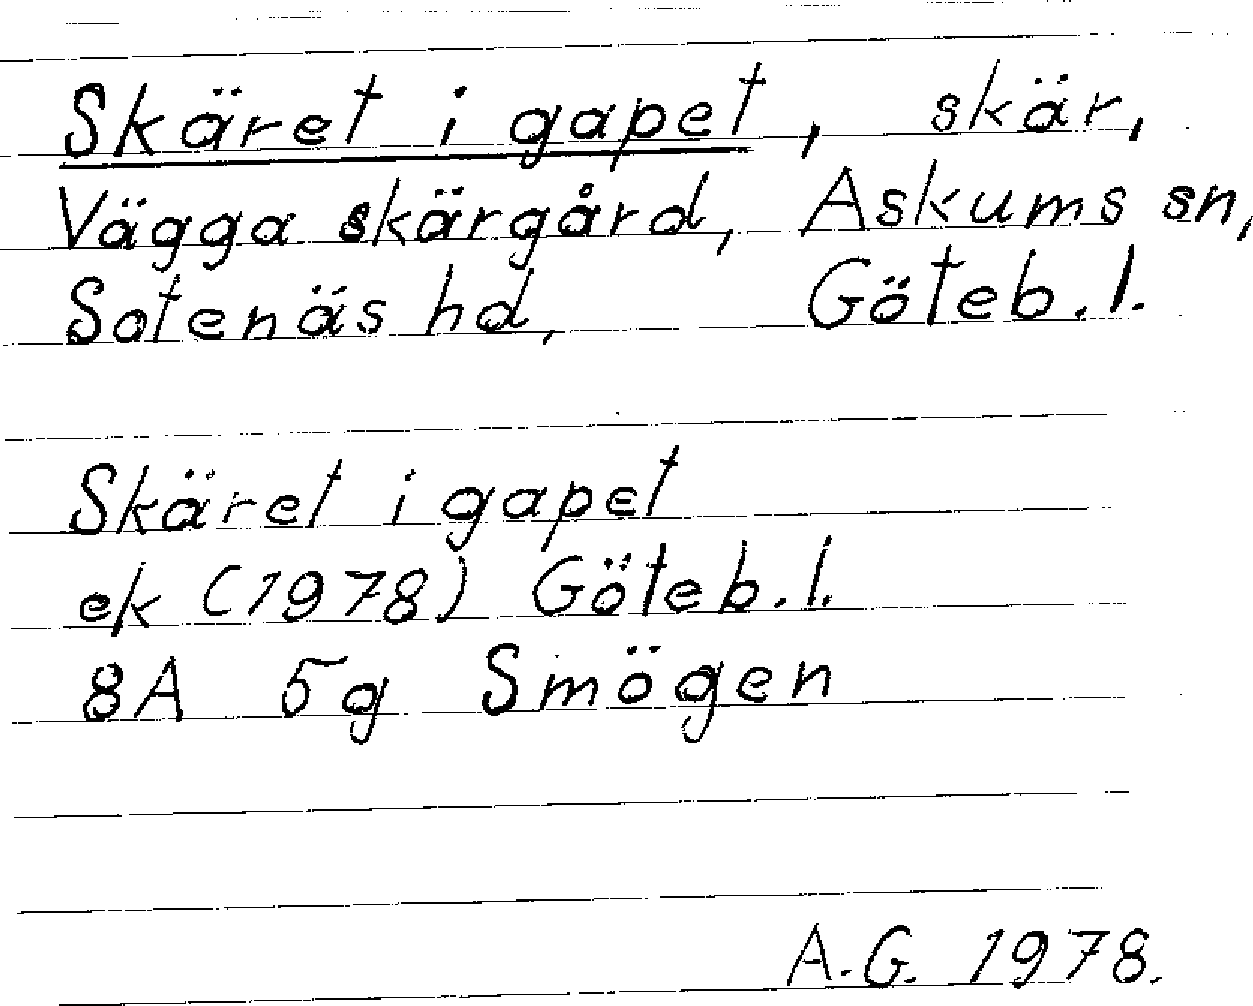 Skäret i gapet, skär,
Vägga skärgård, Askums sn,
Sotenäs hd, Göteb.l.
Skäret i gapet
ek (1978) Göteb.l.
8A 5g Smögen
A.G. 1978.